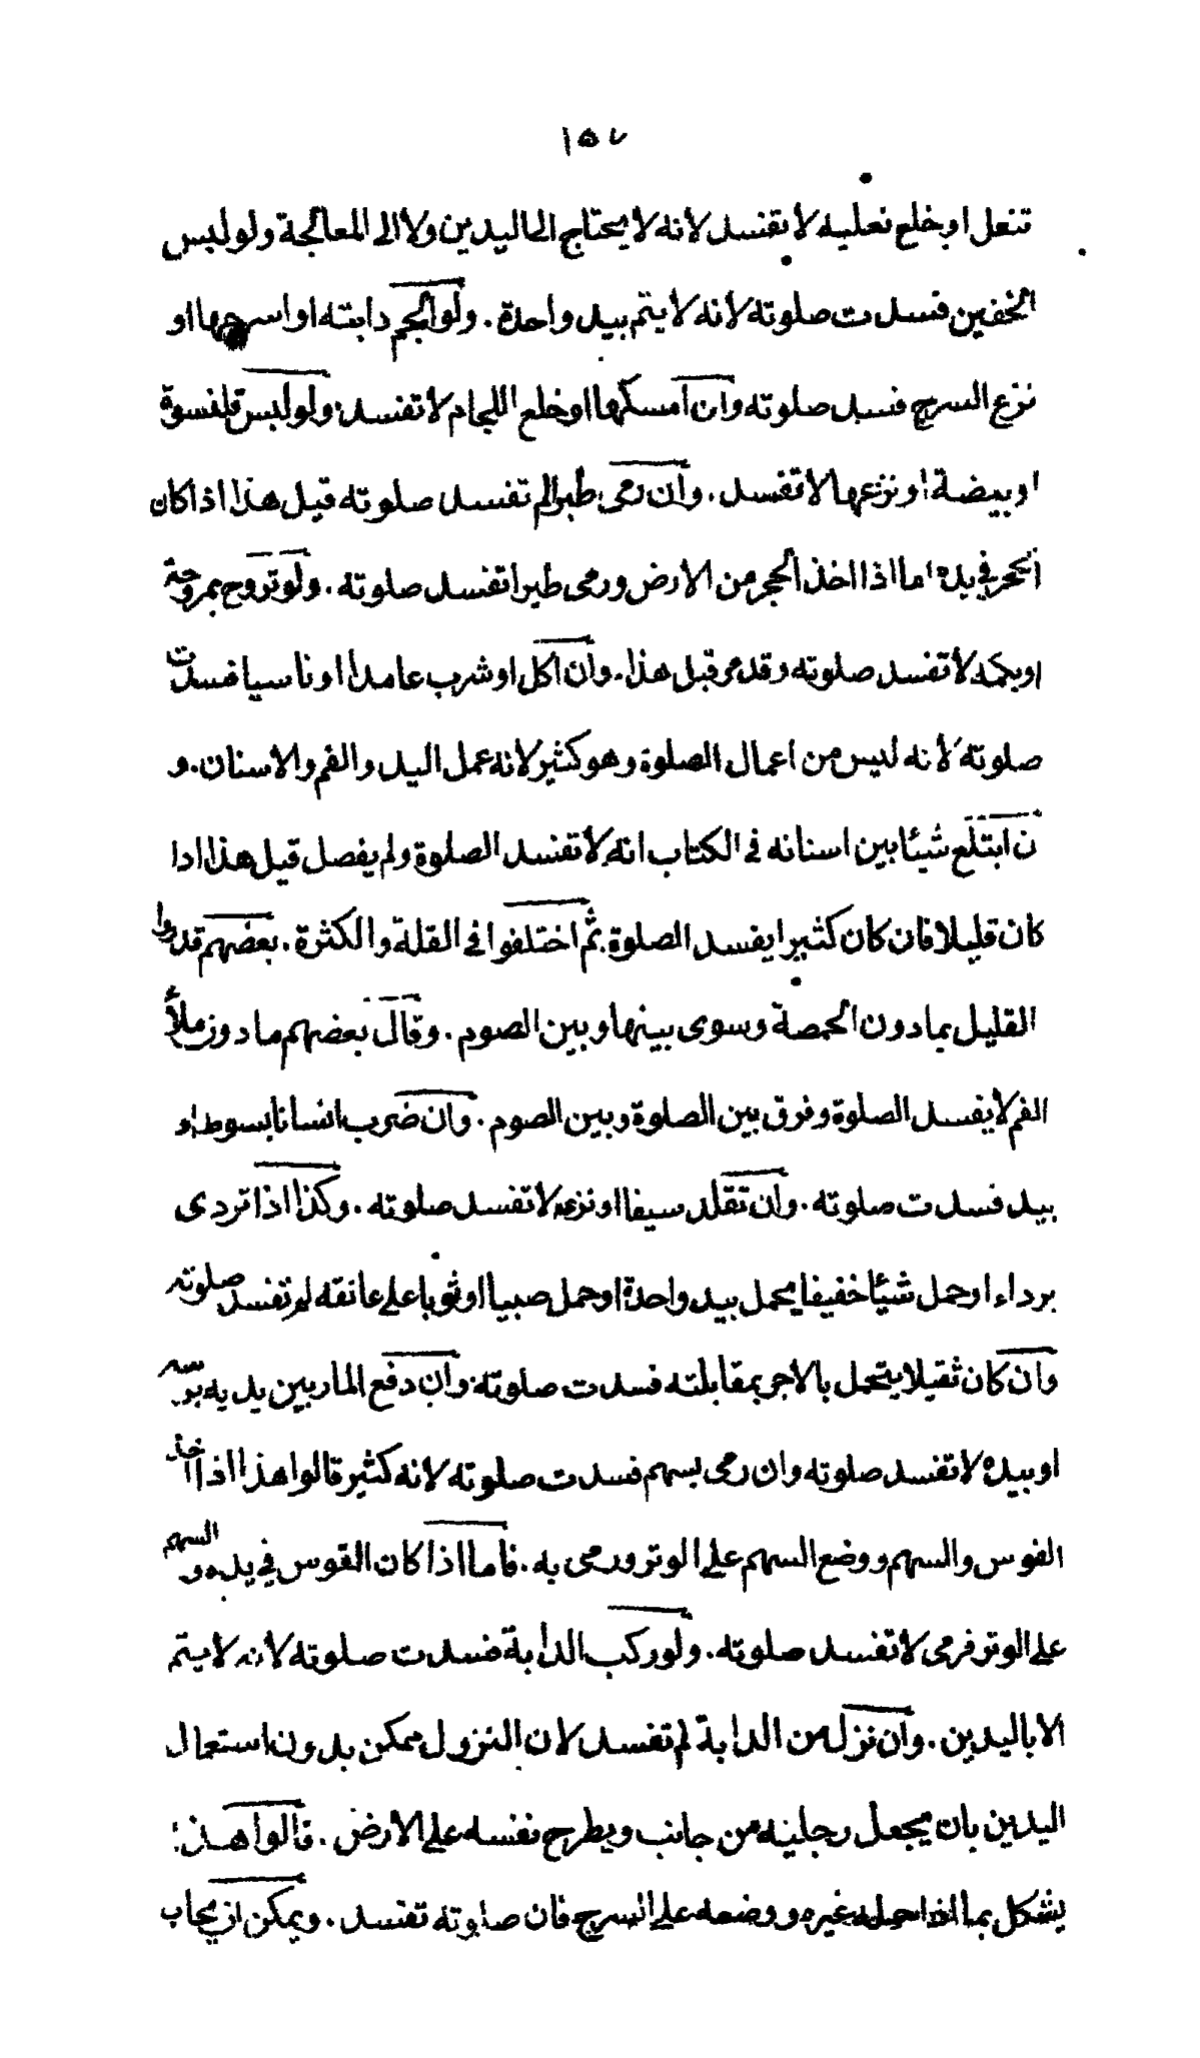 ١٥٧
تنعل او خلع نعليه لا تفسد لانه لا يحتاج الى اليدين ولا الى المعالجة ولو لبس
الخفين فسدت صلوته لانه لا يتم بيد واحدة . ولو الجم دابته او اسرجها او
نزع السرج فسد صلوته وان امسكها او خلع اللجام لا تفسد ولو لبس قلنسوة
او بيضة او نزعها لا تفسد . وان رمى طيرا لم تفسد صلوته قيل هذا اذا كان
الحجر في يده اما اذا اخذ الحجر من الارض ورمى طيرا تفسد صلوته . ولو تروح بمروحة
او بكمه لا تفسد صلوته وقد مر قبل هذا . وان اكل او شرب عامدا او ناسيا فسدت
صلوته لانه ليس من اعمال الصلوة وهو كثير لانه عمل اليد والفم والاسنان . و
ن ابتلع شيئا بين اسنانه في الكتاب انه لا تفسد الصلوة ولم يفصل قيل هذا اذا
كان قليلا فان كان كثيرا يفسد الصلوة . ثم اختلفوا في القلة والكثرة . بعضهم قدروا
القليل بما دون الحمصة وسوى بينها وبين الصوم . وقال بعضهم ما دون ملأ
الفم لا يفسد الصلوة وفرق بين الصلوة وبين الصوم . وان ضرب انسانا بسوط او
بيد فسدت صلوته . وان تقلد سيفا او نزعه لا تفسد صلوته . وكذا اذا تردى
برداء او حمل شيئا خفيفا يحمل بيد واحدة او حمل صبيا او ثوبا على عاتقه لم تفسد صلوته
وان كان ثقيلا يتحمل بالاجر بمقابلته فسدت صلوته وان دفع المار بين يديه براسه
او بيده لا تفسد صلوته وان رمى بسهم فسدت صلوته لانه كثير قالوا هذا اذا اخذ
القوس والسهم ووضع السهم على الوتر ورمى به . فاما اذا كان القوس في يده والسهم
على الوتر فرمى لا تفسد صلوته . ولو ركب الدابة فسدت صلوته لانه لا يتم
الا باليدين . وان نزل من الدابة لم تفسد لان النزول ممكن بدون استعمال
اليدين بان يجعل رجليه من جانب ويطرح نفسه على الارض . قالوا هذا
يشكل بما اذا حمله غيره ووضعه على السرج فان صلوته تفسد . ويمكن ان يجاب